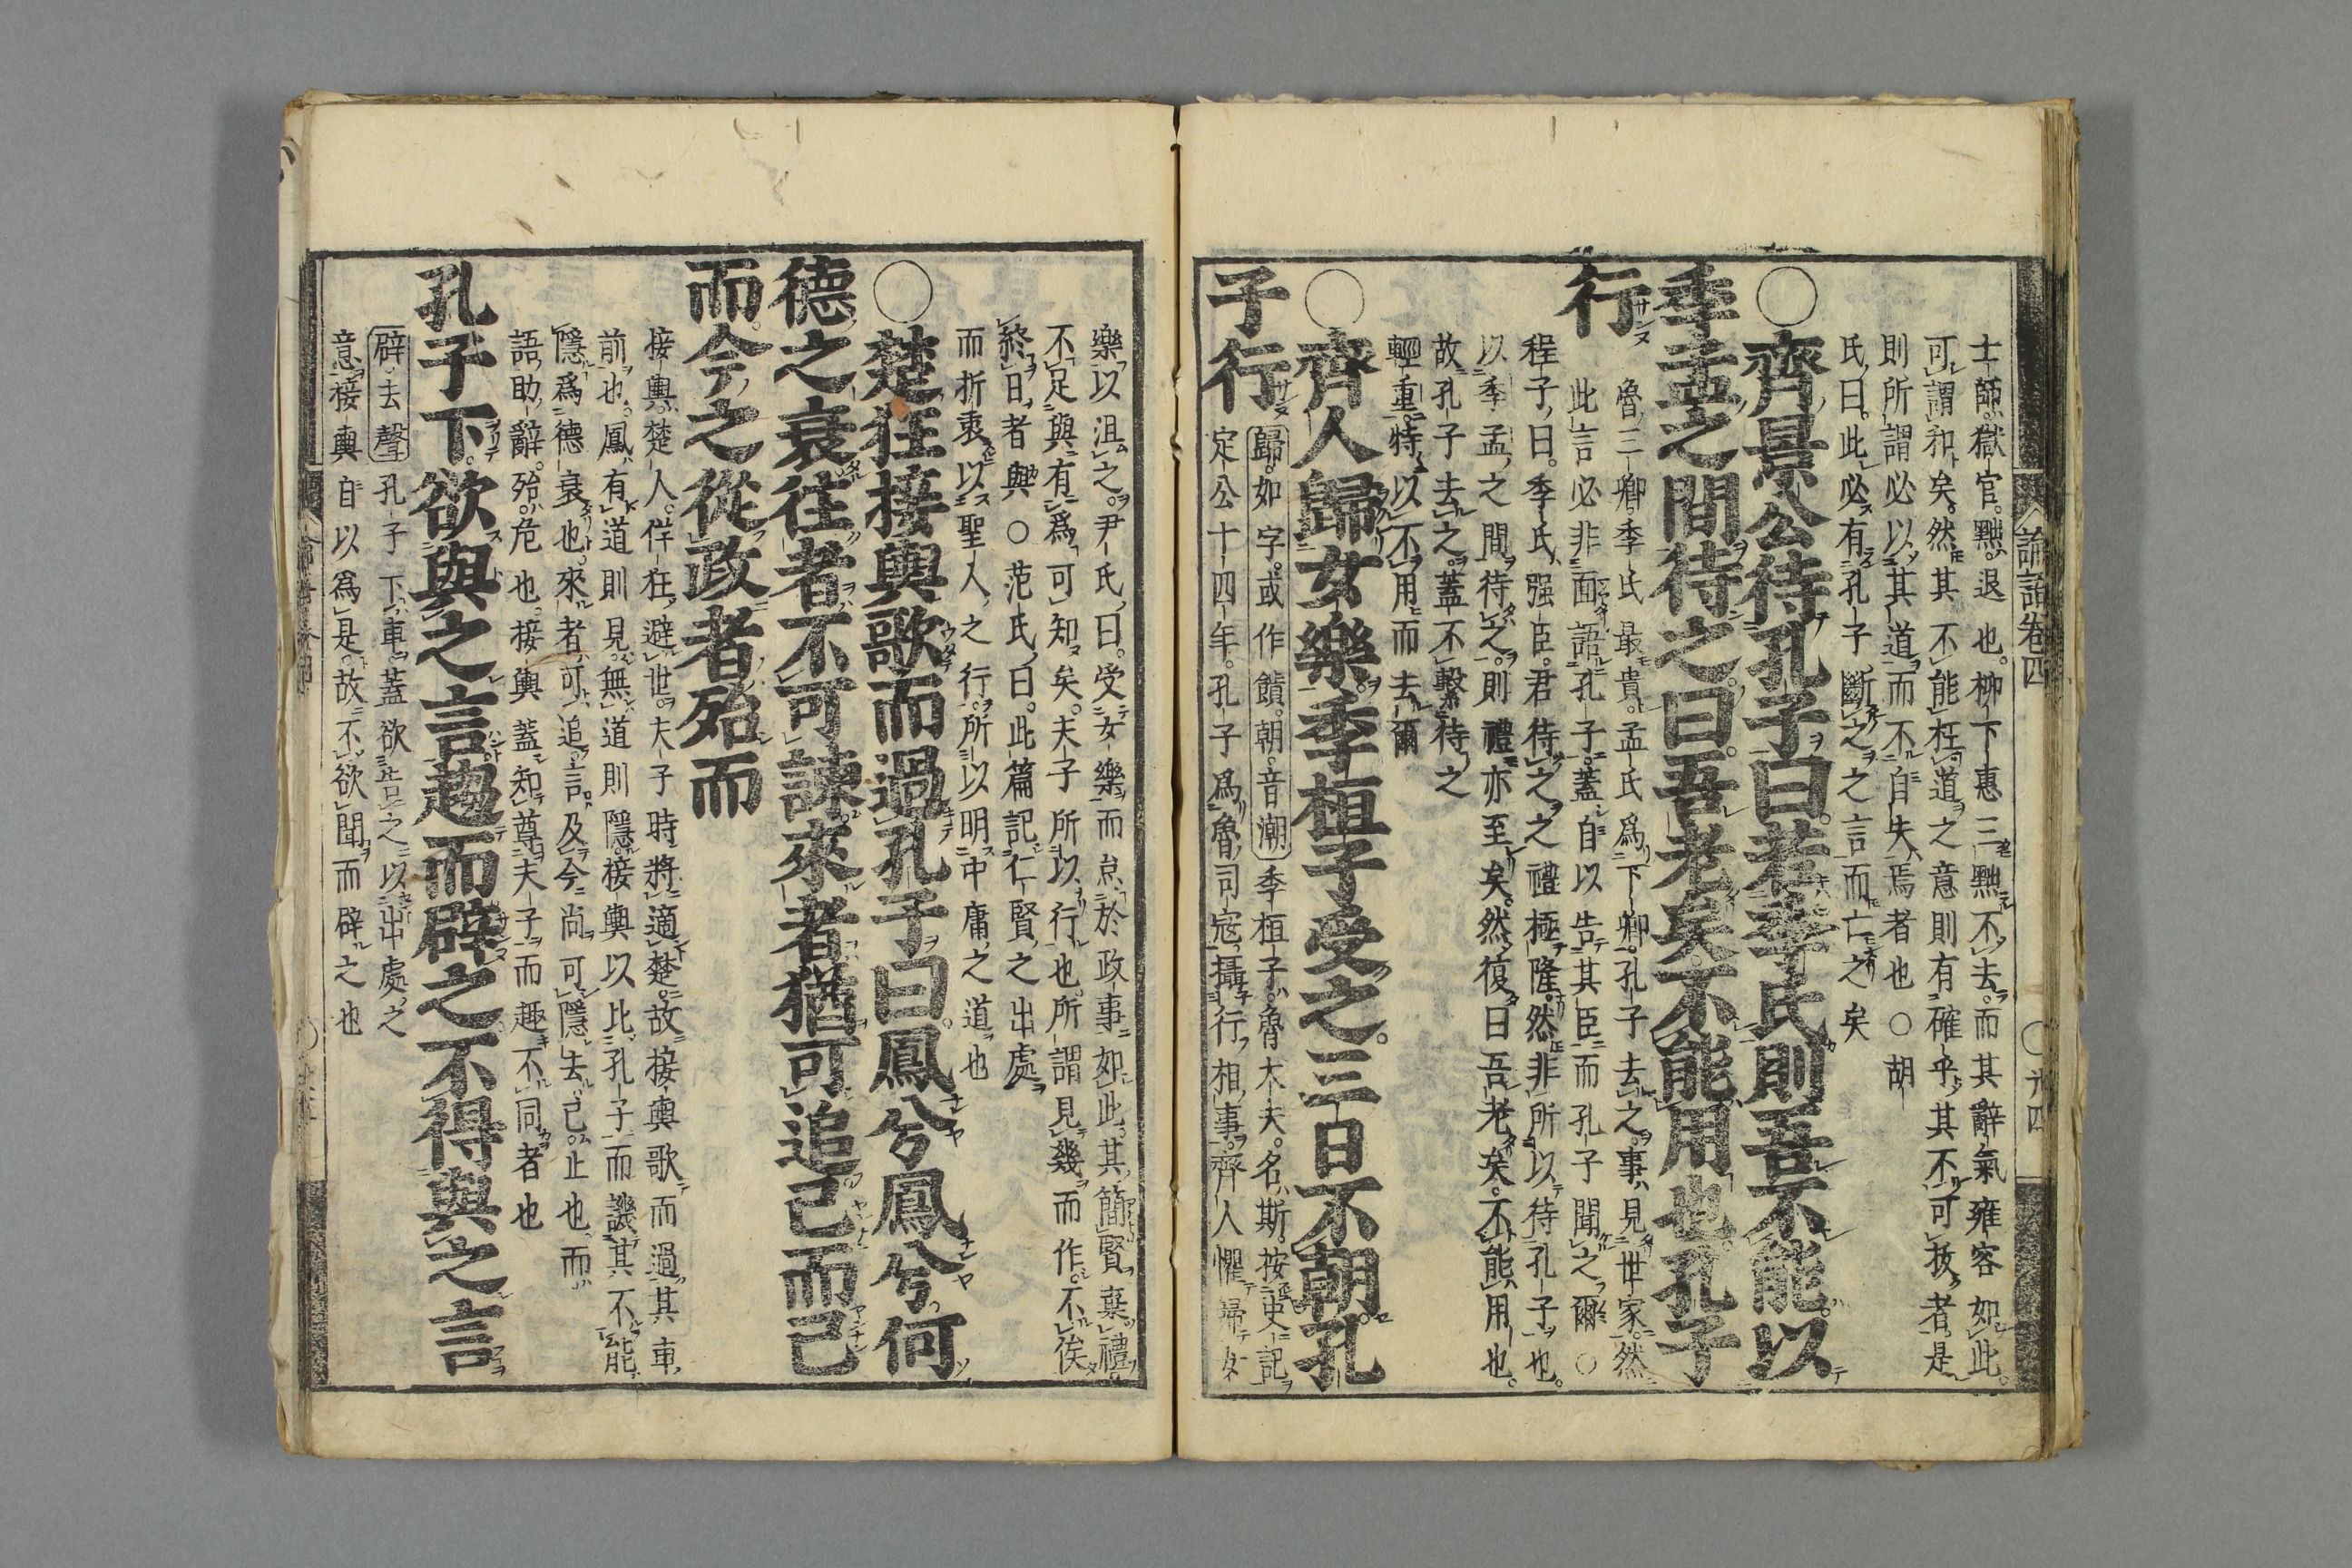 論語卷四
士師獄官黜退也柳下惠三黜不去而其辭氣雍容如此
可謂和矣然其不能枉道之意則有確乎其不可拔者是
則所謂必以其道而不自失焉者也○胡
氏曰此必有孔子斷之之言而亡之矣
○齊景公待孔子曰若季氏則吾不能以
季孟之間待之曰吾老矣不能用也孔子
行
魯三卿季氏最貴孟氏爲下卿孔子去之事見世家然
此言必非面語孔子蓋自以告其臣而孔子聞之爾○
程子曰季氏强臣君待之之禮極隆然非所以待孔子也
以季孟之間待之則禮亦至矣然復曰吾老矣不能用也
故孔子去之蓋不繫待之
輕重特以不用而去爾
○齊人歸女樂季桓子受之三日不朝孔
子行
歸如字或作饋朝音潮季桓子魯大夫名斯按史記
定公十四年孔子爲魯司寇攝行相事齊人懼歸女
樂以沮之尹氏曰受女樂而怠於政事如此其簡賢棄禮
不足與有爲可知矣夫子所以行也所謂見幾而作不俟
終日者與○范氏曰此篇記仁賢之出處
而折衷以聖人之行所以明中庸之道也
○楚狂接輿歌而過孔子曰鳳兮鳳兮何
德之衰往者不可諫來者猶可追已而已
而今之從政者殆而
接輿楚人佯狂避世夫子時將適楚故接輿歌而過其車
前也鳳有道則見無道則隱接輿以比孔子而譏其不能
隱爲德衰也來者可追言及今尚可隱去已止也而
語助辭殆危也接輿蓋知尊夫子而趣不同者也
孔子下欲與之言趨而辟之不得與之言
辟去聲孔子下車蓋欲告之以出處之
意接輿自以爲是故不欲聞而辟之也